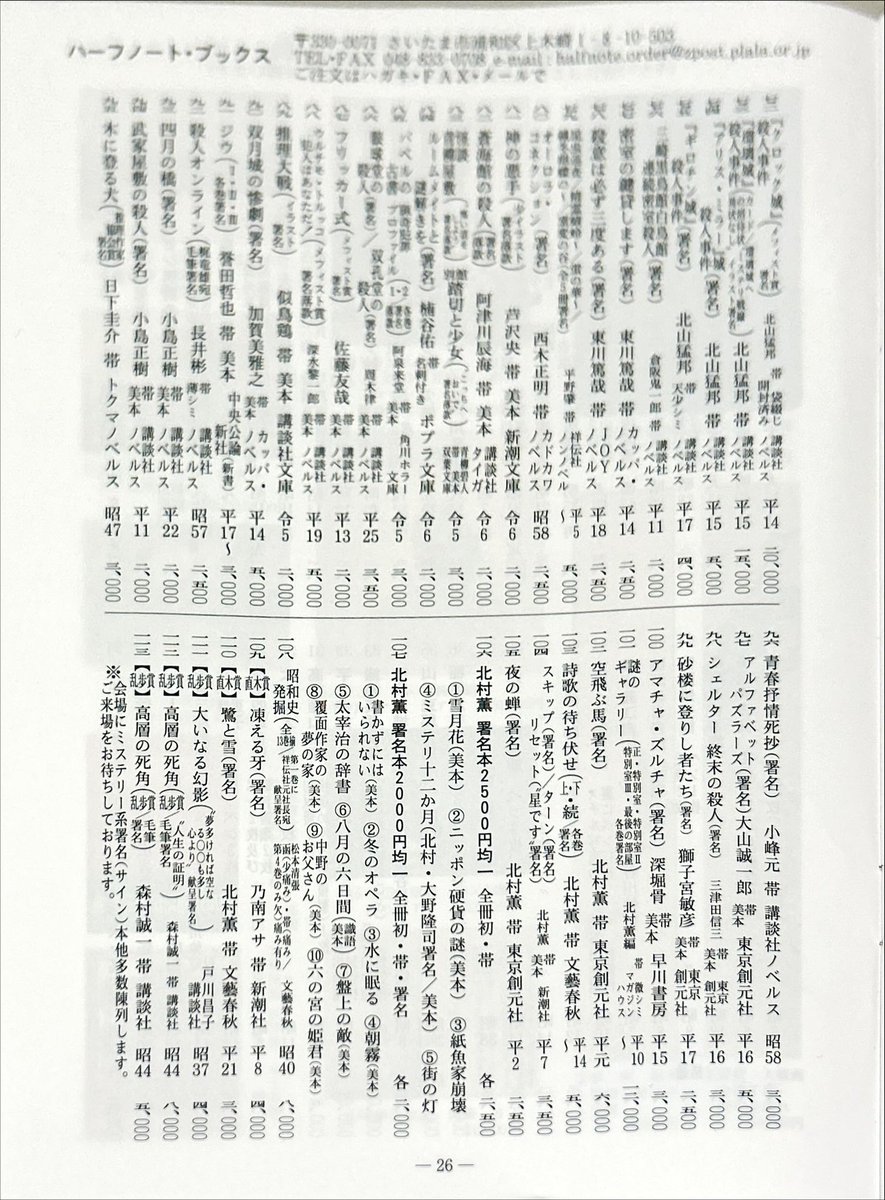 ハーフノート・ブックス
〒330-0071 さいたま市浦和区上木崎1-8-10-503
TEL・FAX 048-833-0708 e-mail: halfnote.order@zpost.plala.or.jp
ご注文はハガキ・FAX・メールで
『クロック城』殺人事件(メフィスト賞 署名) 北山猛邦 帯 袋綴じ開封済み 講談社ノベルス 平14 二〇、〇〇〇
『瑠璃城』殺人事件 北山猛邦 帯 美本 講談社ノベルス 平15 一五、〇〇〇
『アリス・ミラー城』殺人事件(署名) 北山猛邦 帯 美本 講談社ノベルス 平15 五、〇〇〇
『ギロチン城』殺人事件(署名) 北山猛邦 帯 天少シミ 講談社ノベルス 平17 四、〇〇〇
三崎黒鳥館白鳥館連続密室殺人(署名) 倉阪鬼一郎 帯 講談社ノベルス 平11 二、〇〇〇
密室の鍵貸します(署名) 東川篤哉 帯 カッパ・ノベルス 平14 二、五〇〇
殺意は必ず三度ある(署名) 東川篤哉 帯 JOYノベルス 平18 二、五〇〇
平野肇 帯 祥伝社ノンノベル 平5〜 五、〇〇〇
オーロラ・コネクション(署名) 西木正明 帯 カドカワノベルス 昭58 二、五〇〇
神の悪手(署名落款) 芦沢央 帯 美本 新潮文庫 令6 二、〇〇〇
蒼海館の殺人(署名落款) 阿津川辰海 帯 美本 講談社タイガ 令6 二、〇〇〇
踏切と少女 青柳碧人 帯 美本 双葉文庫 令5 二、〇〇〇
ルームメイトと謎解きを(署名) 楠谷佑 帯 名刺付き ポプラ文庫 令6 二、〇〇〇
バベルの古書 阿泉来堂 帯 美本 角川ホラー文庫 令5 三、〇〇〇
双孔堂の殺人(署名) 周木律 帯 美本 講談社ノベルス 平25 三、五〇〇
フリッカー式(メフィスト賞 署名) 佐藤友哉 帯 美本 講談社ノベルス 平13 二、〇〇〇
ウルチモ・トルッコ 犯人はあなただ!(メフィスト賞 署名落款) 深水黎一郎 帯 美本 講談社ノベルス 平19 五、〇〇〇
推理大戦(イラスト署名) 似鳥鶏 帯 美本 講談社文庫 令5 二、〇〇〇
双月城の惨劇(署名) 加賀美雅之 帯 美本 カッパ・ノベルス 平14 五、〇〇〇
ジウ(Ⅰ・Ⅱ・Ⅲ 各巻署名) 誉田哲也 帯 美本 中央公論新社(新書) 平17〜 三、〇〇〇
殺人オンライン(梶竜雄宛 毛筆署名) 長井彬 帯 薄シミ 講談社ノベルス 昭57 二、五〇〇
四月の橋(署名) 小島正樹 帯 美本 講談社ノベルス 平22 二、〇〇〇
武家屋敷の殺人(署名) 小島正樹 帯 美本 講談社ノベルス 平11 二、〇〇〇
木に登る犬 日下圭介 帯 トクマノベルス 昭47 三、〇〇〇
九六 青春抒情死抄(署名) 小峰元 帯 講談社ノベルス 昭58 三、〇〇〇
九七 アルファベット・パズラーズ(署名) 大山誠一郎 帯 美本 東京創元社 平16 五、〇〇〇
九八 シェルター 終末の殺人(署名) 三津田信三 帯 美本 東京創元社 平16 三、〇〇〇
九九 砂楼に登りし者たち(署名) 獅子宮敏彦 帯 美本 東京創元社 平17 二、五〇〇
一〇〇 アマチャ・ズルチャ(署名) 深堀骨 帯 美本 早川書房 平15 三、〇〇〇
謎のギャラリー(正・特別室・特別室Ⅱ 特別室Ⅲ・最後の部屋 各巻署名) 北村薫編 帯 微シミ マガジンハウス 平10〜 一二、〇〇〇
一〇二 空飛ぶ馬(署名) 北村薫 帯 東京創元社 平元 六、〇〇〇
一〇三 詩歌の待ち伏せ(上・下・続 各巻署名) 北村薫 帯 文藝春秋 平14〜 五、五〇〇
一〇四 スキップ(署名)/ターン(署名) リセット("星です"署名) 北村薫 帯 美本 新潮社 平7 三、五〇〇
一〇五 夜の蝉(署名) 北村薫 帯 東京創元社 平2 二、五〇〇
一〇六 北村薫 署名本2500円均一 全冊初・帯 各 二、五〇〇
①雪月花(美本) ②ニッポン硬貨の謎(美本) ③紙魚家崩壊
④ミステリ十二か月(北村・大野隆司署名/美本) ⑤街の灯
一〇七 北村薫 署名本2000円均一 全冊初・帯・署名 各 二、〇〇〇
①書かずにはいられない(美本) ②冬のオペラ ③水に眠る ④朝霧(美本)
⑤太宰治の辞書 ⑥八月の六日間(識語 美本) ⑦盤上の敵(美本)
⑧覆面作家の夢の家(美本) ⑨中野のお父さん(美本) ⑩六の宮の姫君(美本)
一〇八 昭和史発掘(全13巻揃/第一巻に祥伝社元社長宛献呈署名) 松本清張 函(少痛み)・帯(痛み/第4巻のみ欠)痛み有り 文藝春秋 昭40 八、〇〇〇
一〇九 【直木賞】凍える牙(署名) 乃南アサ 帯 新潮社 平8 四、〇〇〇
一一〇 【直木賞】鷺と雪(署名) 北村薫 帯 文藝春秋 平21 三、〇〇〇
一一一 【乱歩賞】大いなる幻影("夢多ければ空なる〇〇も多し 心より"献呈署名) 戸川昌子 講談社 昭37 五、〇〇〇
一一二 【乱歩賞】高層の死角(乱歩賞/"人生の証明" 毛筆署名) 森村誠一 帯 講談社 昭44 八、〇〇〇
一一三 【乱歩賞】高層の死角(乱歩賞 毛筆署名) 森村誠一 帯 講談社 昭44 五、〇〇〇
※会場にミステリー系署名(サイン)本他多数陳列します。
ご来場をお待ちしております。
— 26 —